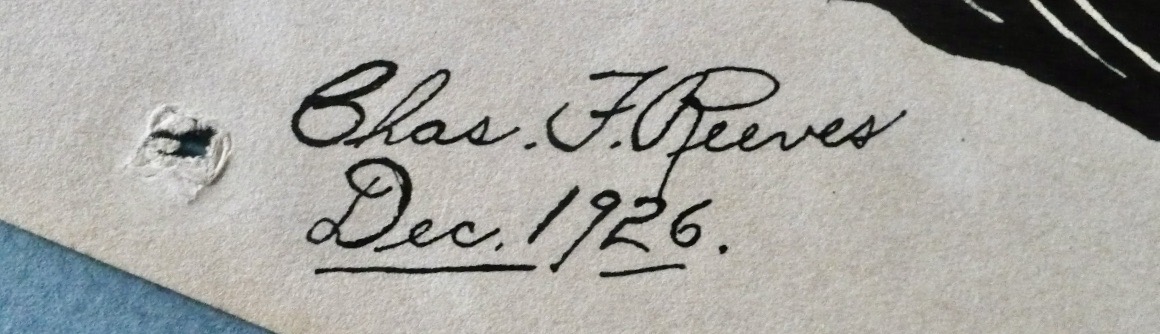 Chas. F. Reeves
Dec. 1926.